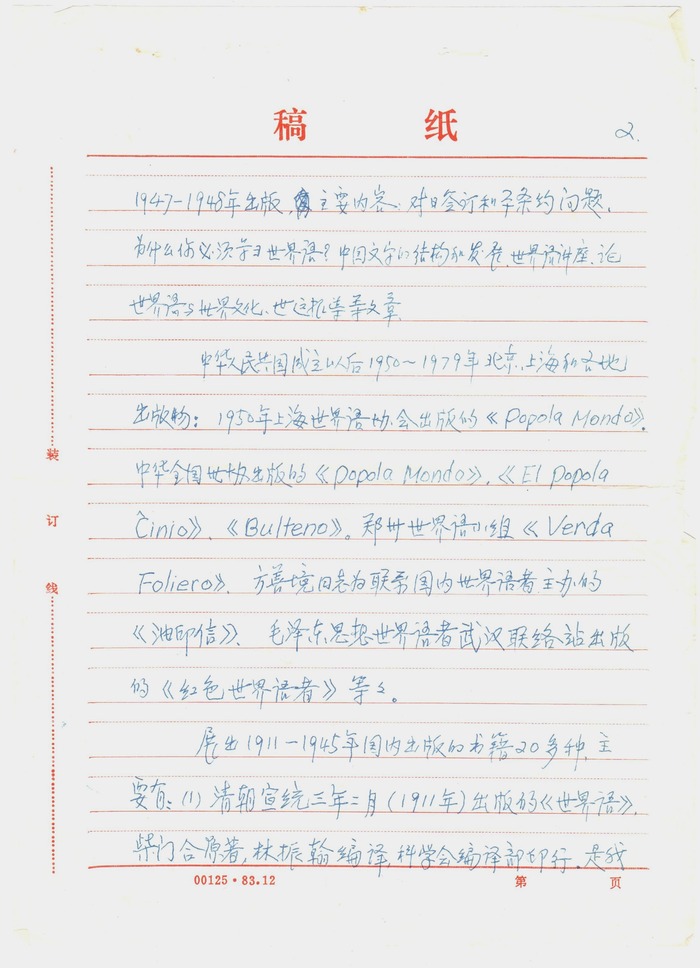 稿 纸
2.
1947-1948年出版,主要内容:对日签订和平条约问题、
为什么你必须学习世界语?中国文字的结构和发展、世界语讲座、论
世界语与世界文化、世运报导等文章
中华人民共国成立以后1950~1979年北京、上海和各地
出版物:1950年上海世界语协会出版的《Popola Mondo》.
中华全国世协出版的《Popola Mondo》、《El Popola
Ĉinio》、《Bulteno》。郑州世界语小组《Verda
Foliero》、方善境同志为联系国内世界语者主办的
《油印信》、毛泽东思想世界语者武汉联络站出版
的《红色世界语者》等々。
展出1911-1945年国内出版的书籍20多种,主
要有:(1)清朝宣统三年二月(1911年)出版的《世界语》,
柴门合原著,林振翰编译,科学会编译部印行.是我
装
订
线
00125·83.12 第 页